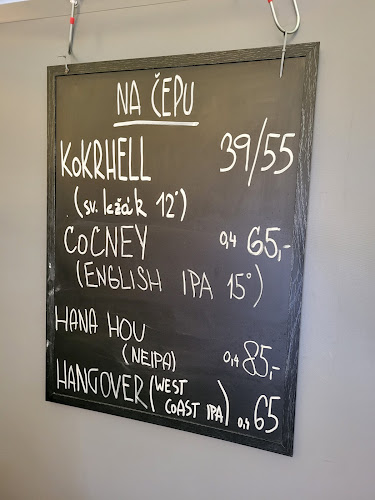 NA ČEPU
KOKRHELL 39/55
(sv. ležák 12°)
COČNEY 0,4 65,-
(ENGLISH IPA 15°)
HANA HOU
(NEIPA) 0,4 85,-
HANGOVER (WEST
COAST IPA) 0,4 65